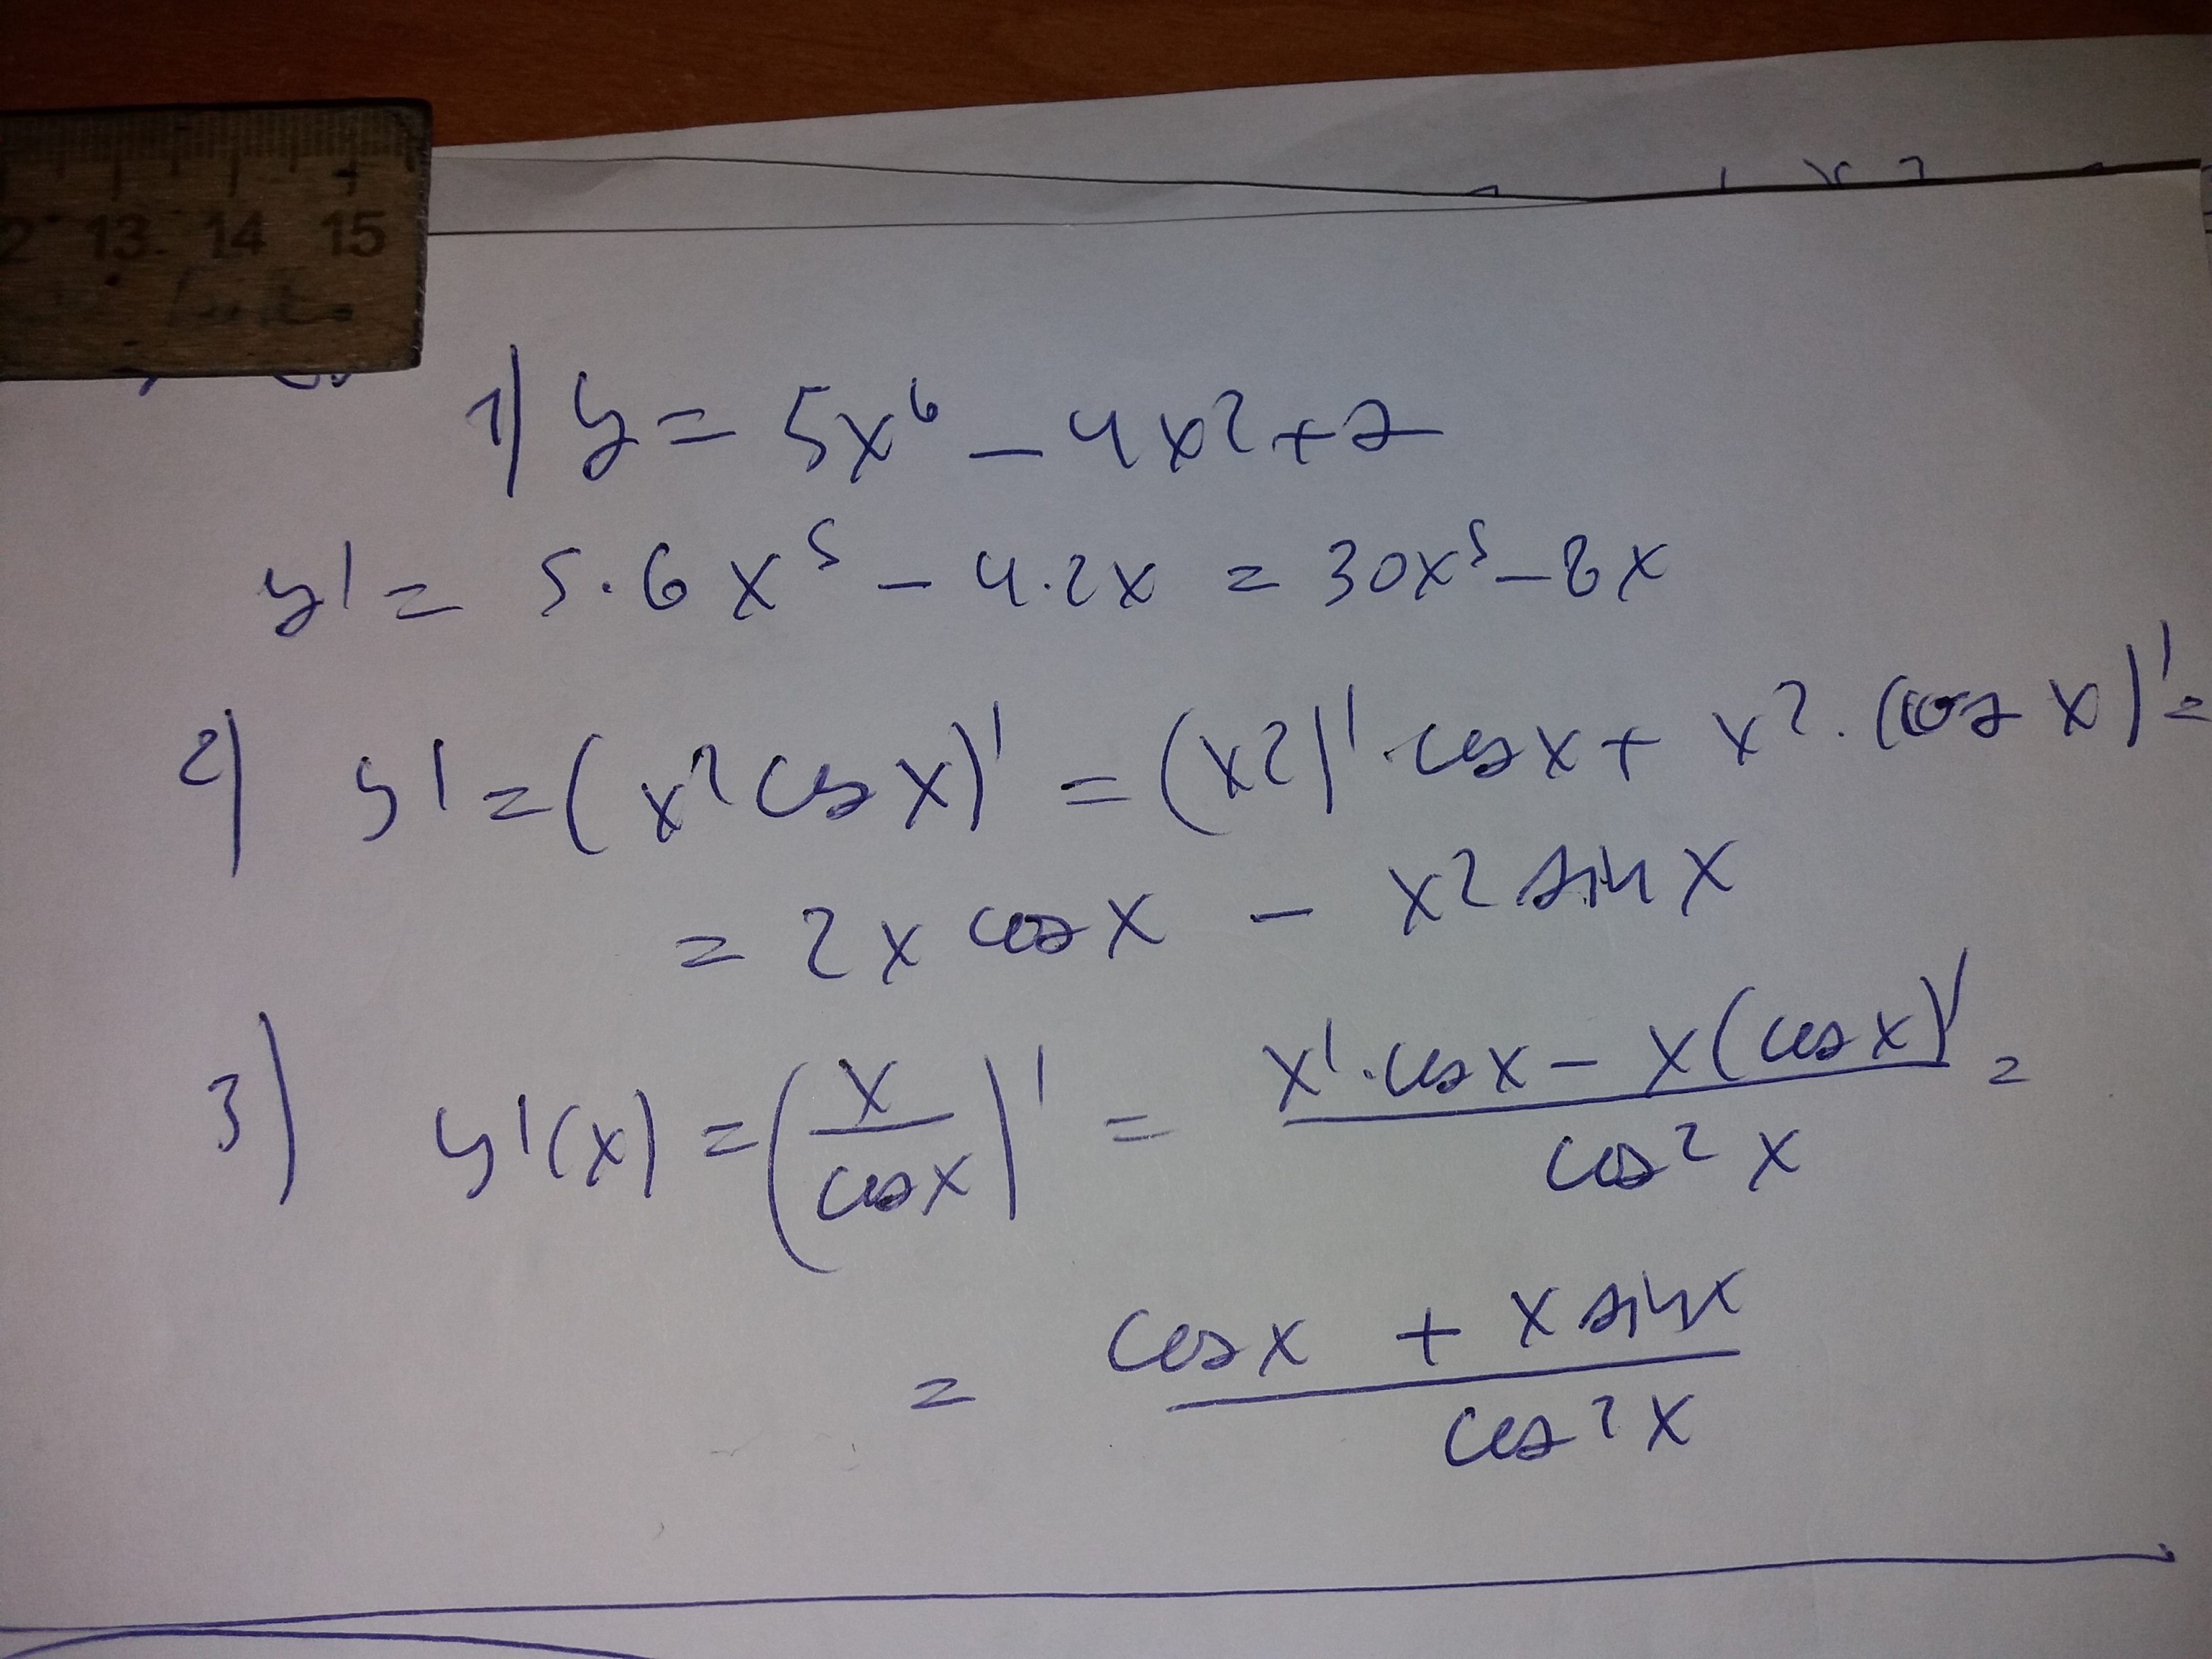 2 13 14 15
1) y = 5x⁶ - 4x² + 2
y' = 5·6x⁵ - 4·2x = 30x⁵ - 8x
2) y' = (x² cos x)' = (x²)'·cos x + x²·(cos x)' =
= 2x cos x - x² sin x
3) y'(x) = (x / cos x)' = (x'·cos x - x(cos x)') / cos² x =
= (cos x + x sin x) / cos² x